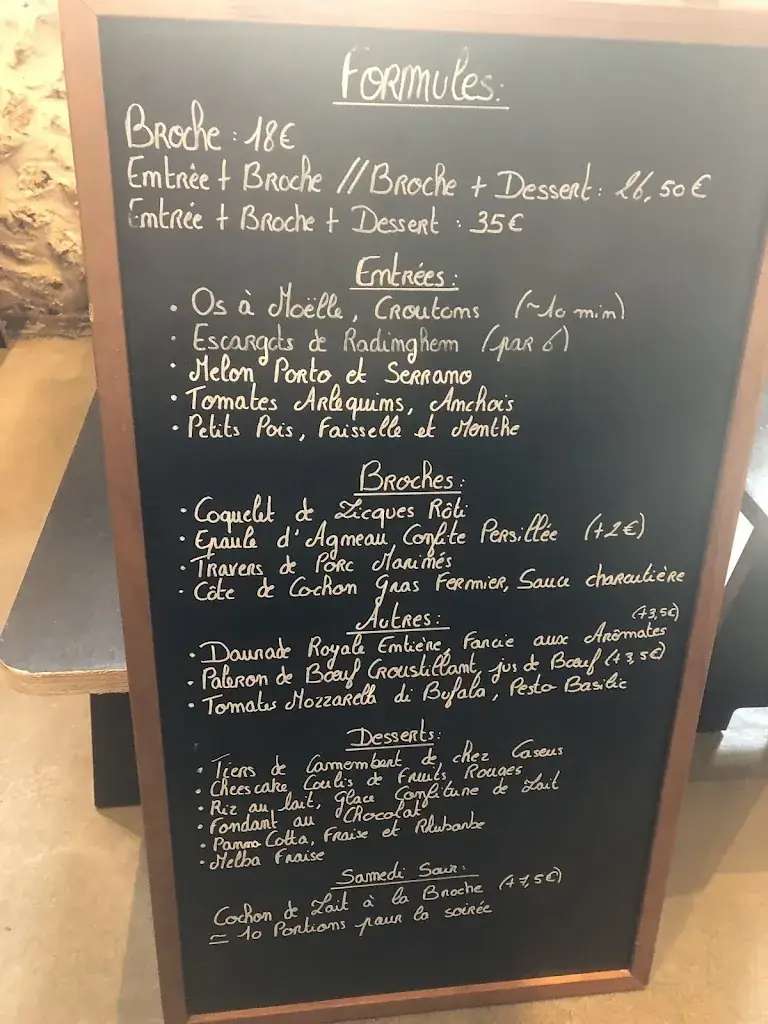 FORMULES:
BROCHE : 18€
Entrée + BROCHE // BROCHE + DESSERT: 26,50€
Entrée + BROCHE + DESSERT : 35€
Entrées:
• Os à Moëlle, CROUTONS (~10 min)
• ESCARGOTS de Radinghem (par 6)
• Melon PORTO et SERRANO
• TOMATES ARLEQUINS, Anchois
• Petits Pois, Faisselle et Menthe
BROCHES:
• Coquelet de Licques Rôti
• Epaule d'Agneau, Confite Persillée (+2€)
• TRAVERS de PORC Marinés
• Côte de Cochon Gras FERMIER, Sauce charcutière
AUTRES: (+3,5€)
• Daurade Royale Entière, Farcie aux Arômates
• Paleron de Bœuf Croustillant, jus de Bœuf (+3,5€)
• Tomates Mozzarella di Bufala, Pesto Basilic
Desserts:
• Tiers de Camembert de chez Caseus
• Cheescake Coulis de Fruits Rouges
• Riz au lait, glace Confiture de Lait
• Fondant au Chocolat
• Panna Cotta, Fraise et Rhubarbe
• Melba Fraise
Samedi Soir:
Cochon de Lait à la Broche (+7,5€)
≃ 10 Portions pour la soirée